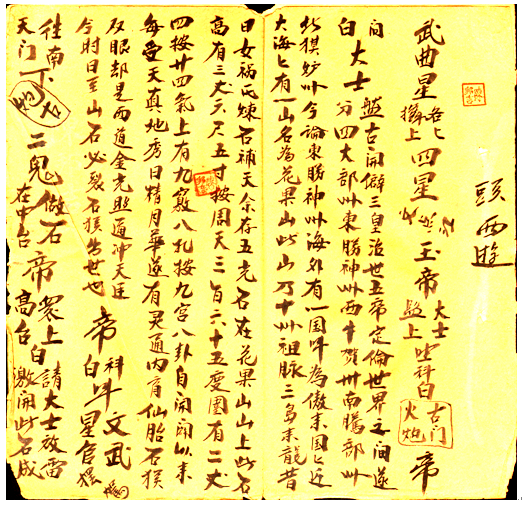 頭西遊
武曲星 各匕 上 四星 玉帝 大士 上 坐科白 古门 火炮 帝
问 大士 盤古開僻三皇治世五帝定倫世界之间遂
白 分四大部卅東勝神卅西牛贺卅南贍部卅
北俱炉卅今論東勝神卅海外有一国叫為傲来国匕近
大海匕有一山名為花果山此山乃十卅祖脉三島来龍昔
日女祸氏煉石補天余存五光石在花果山山上此石
高有三丈六尺五寸按周天三百六十五度圍有二丈
四按廿四氣上有九竅八孔按九宫八卦自開闢以来
每受天真地秀日精月華遂有灵通内育仙胎石猴
反眼却是西道金光照通冲天臣 科 文武
今时日至山石必裂石猴出世也 帝 白 叫星官
往南 下 二鬼做石 帝 衆上 請大士放雷
天门 在中台 高台 白 激開此石成